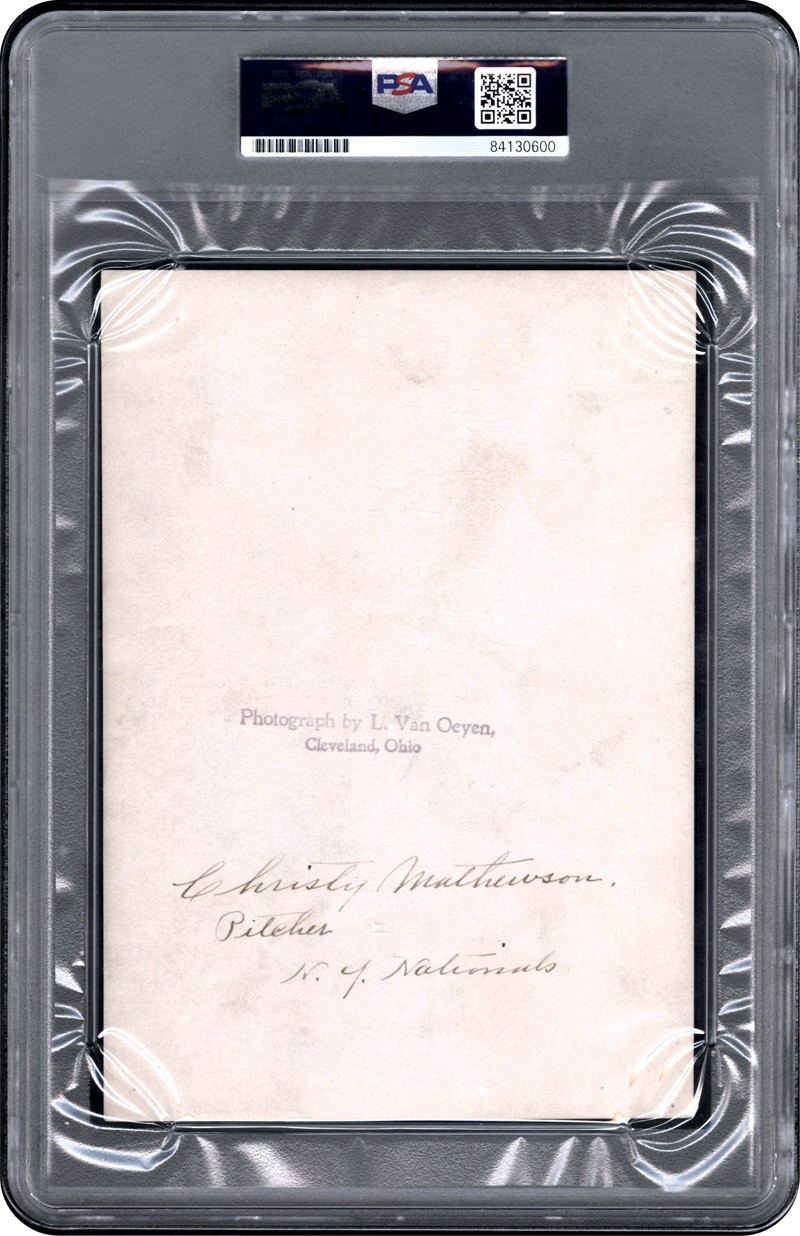 PSA
84130600
Photograph by L. Van Oeyen,
Cleveland, Ohio
Christy Mathewson.
Pitcher
N. Y. Nationals